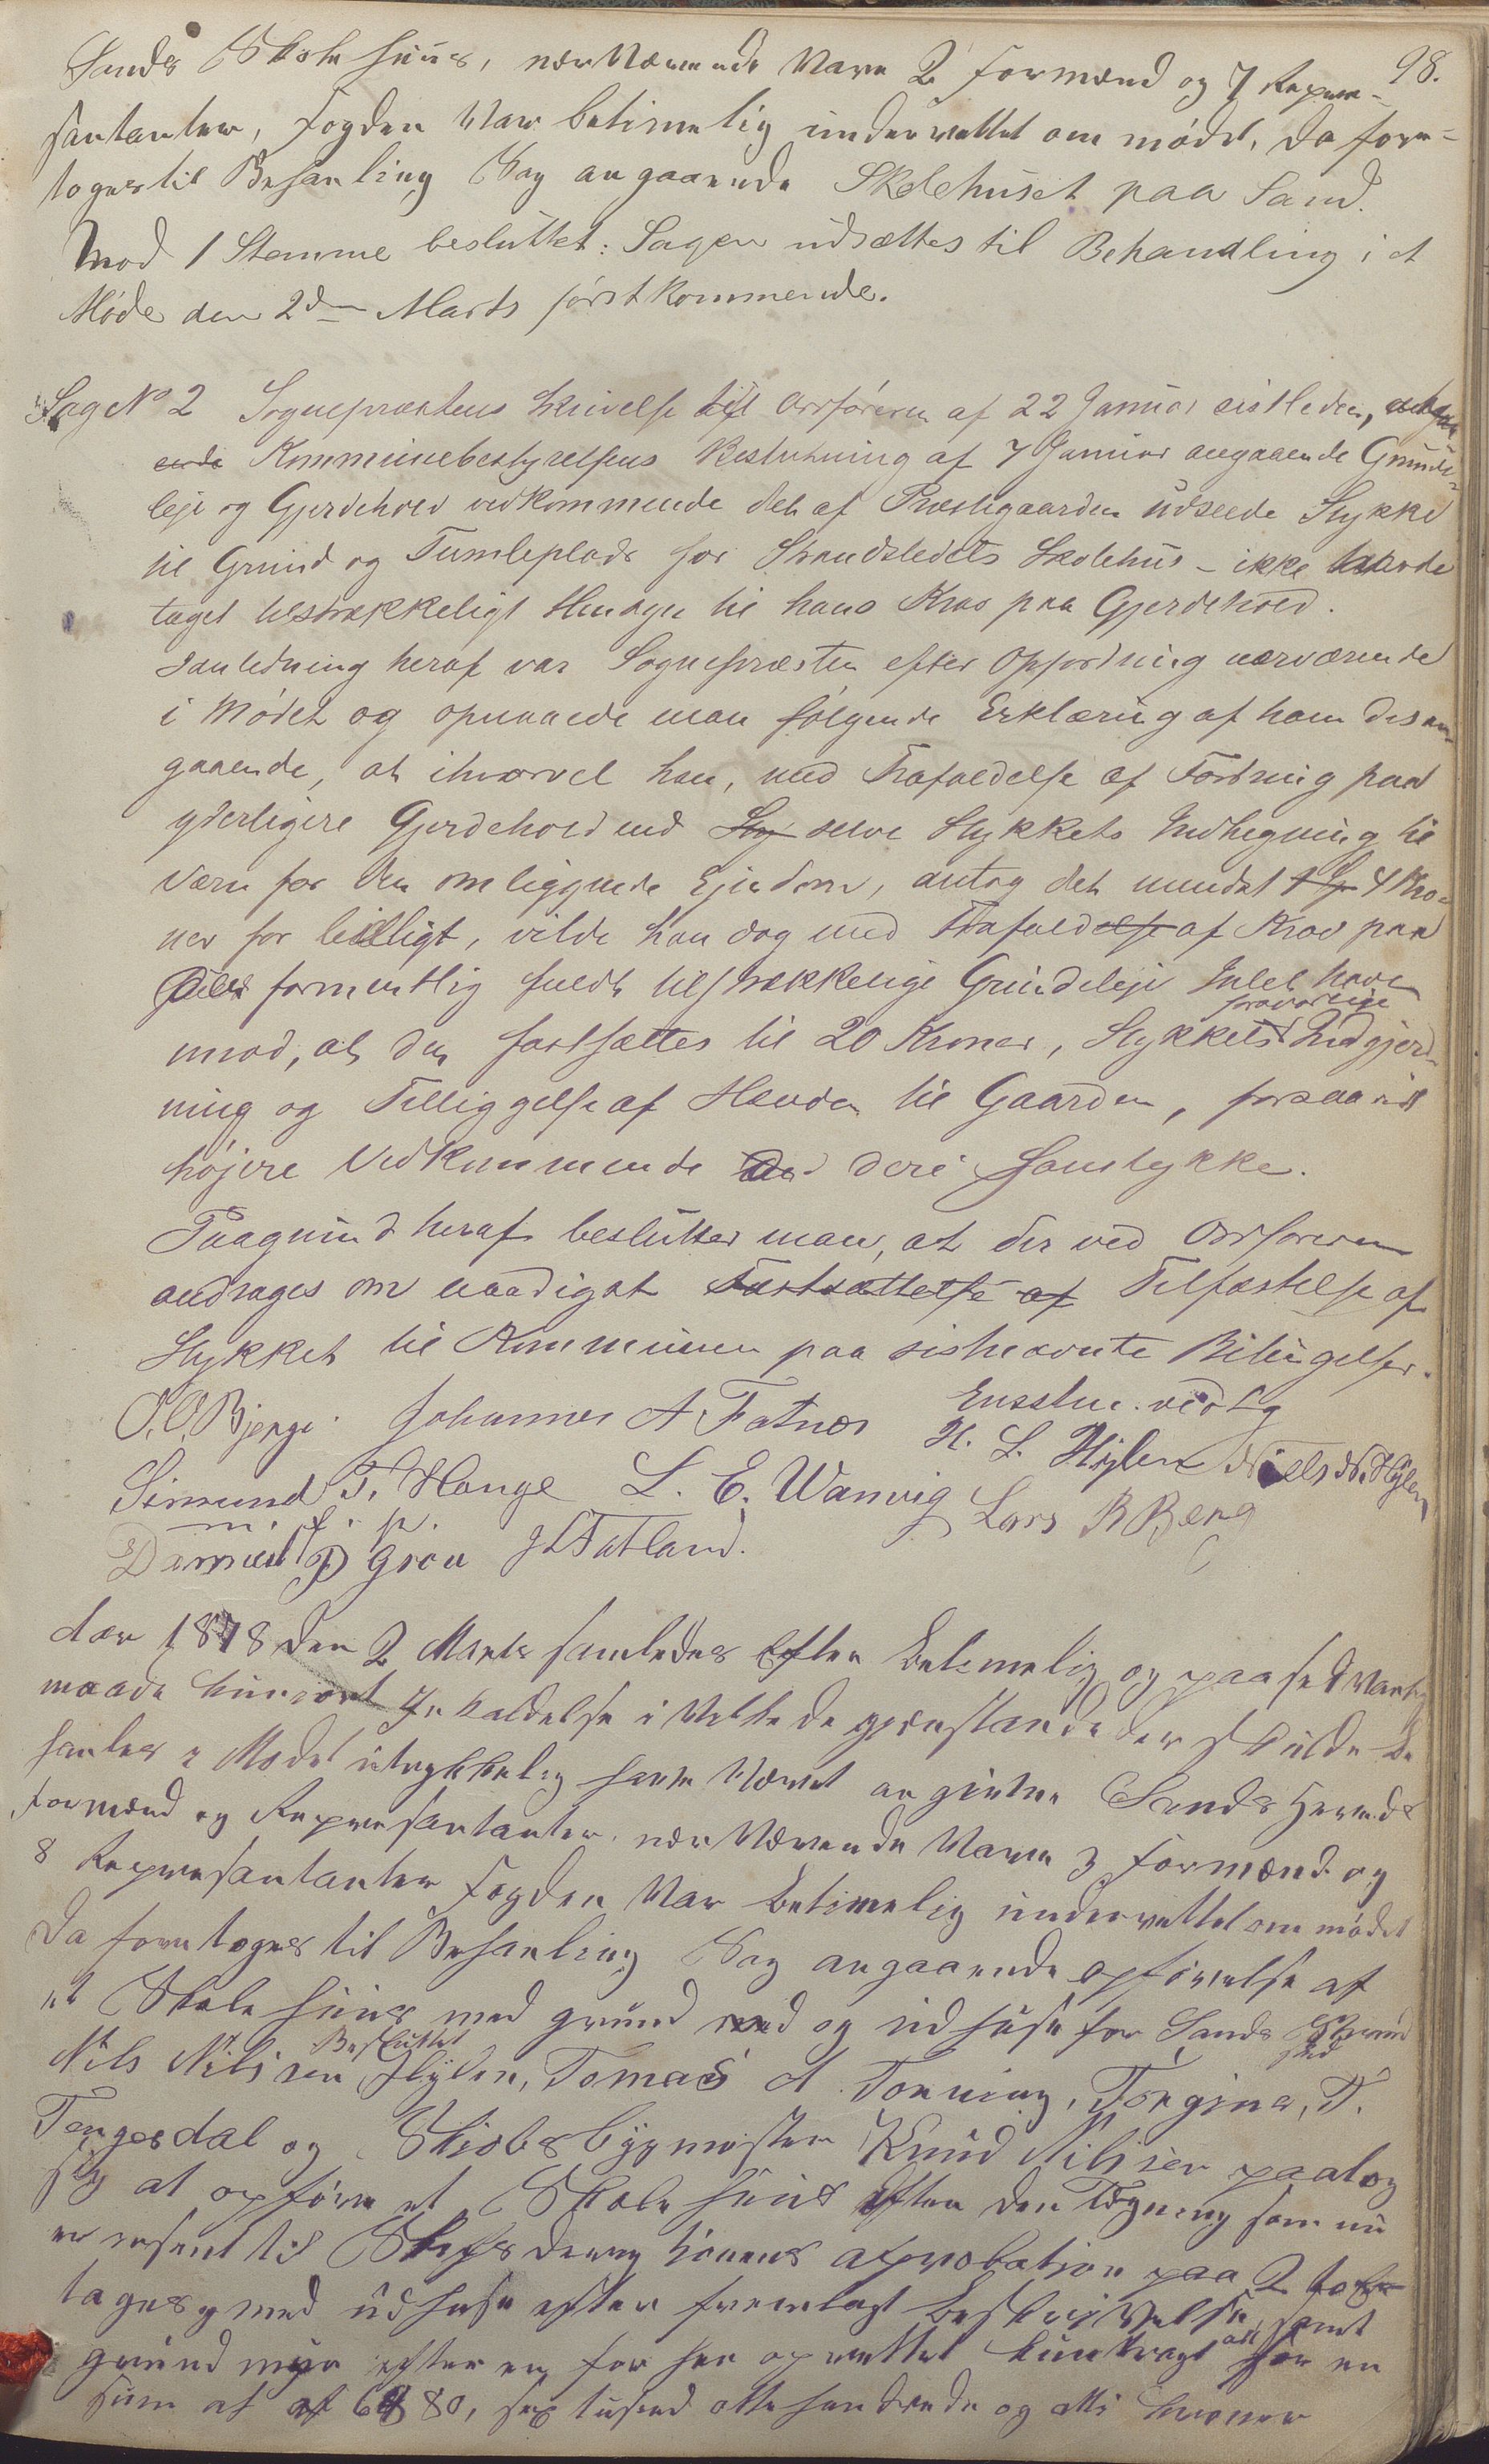 98.
Sands Skole huus, nærværende Vare 2 formænd og 7 Repræ-
santanter, fogden Var betimelig underrettet om mødet, da fore-
toges til Behanling Sag angaaende Skolehuset paa Sand.
Mod 1 Stemme besluttet: Sagen udsættes til Behandling i et
Møde den 2den Marts førstkommende.
Sag No 2 Sognepræstens Skrivelse til Ordføreren af 22 Januar sistleden,
Kommunebestyrelsens Beslutning af 7 Januar angaaende Grunde-
leje og Gjerdehold vedkommende det af Præstegaarden udseede Stykke
til Grund og Tumleplads for Strandstedets Skolehus - ikke havde
taget tilstrækkeligt Hensyn til hans Krav paa Gjerdehold.
I anledning heraf var Sognepræsten efter Opfordring nærværende
i Mødet og opnaaede man følgende Erklæring af ham desan-
gaaende, at ihvorvel han, med Frafaldelse af Fordring paa
yderligere Gjerdehold end selve Stykkets Indhegning til
Værn for den omliggende Ejendom, antog det mindst 4 Kro-
ner for billigt, vilde han dog med Frafaldelse af Krav paa
formentlig fuldt tilstrækkelige Grundleje Intet have
imod, at den fastsættes til 20 Kroner, Stykkets forsvarlige Indgjerd-
ning og Tilliggelse af Hævden til Gaarden, forsaavidt
højere Vedkommende deri samtykke.
Paagrund heraf beslutter man, at der ved Ordføreren
andrages om naadigst Fastsættelse af Tilfæstelse af
Stykket til Kommunen paa sistnævnte Betingelser.
Enstem. vedtg
O. O. Bjerge. Johannes A Fatnes H. L. Hylen Niels N. Hylen
Simund T. Hauge L. E. Wanvig Lars B Berg
m. f. p.
Daniel P Grou J L Fatland.
Aar 1878 den 2 Marts samledes Efter betimelig og paa sedvanlig
maade kunjort Inkaldelse i Velke de gjenstande der skulde be
hanles i Mødet utrykkelig havde Været angivne Sands Hereds
formænd og Repræsantanter, nærværende Vare 3 formænd og
8 Repræsantanter fogden Var betimelig underrettet om mødet
Da foretoges til Behanling Sag angaaende opførelse af
et Skole huus med grund og udhuse for Sands Strand
sted
Besluttet
Nils Nilsen Hylen, Tomas A. Tonning, Torgius, T.
Tengesdal og Skibsbygmester Knud Nilsen paatog
sig at opføre et Skole huus efter den Tegning som nu
er insent til Stifsdireksionens aprobation paa 2
tages med udhuse efter fremlagt beskrivelse, samt
grund mur efter en for her oprettet kuntragt alt for en
sum af 6880, sex tusend otte hundrede og otti kroner